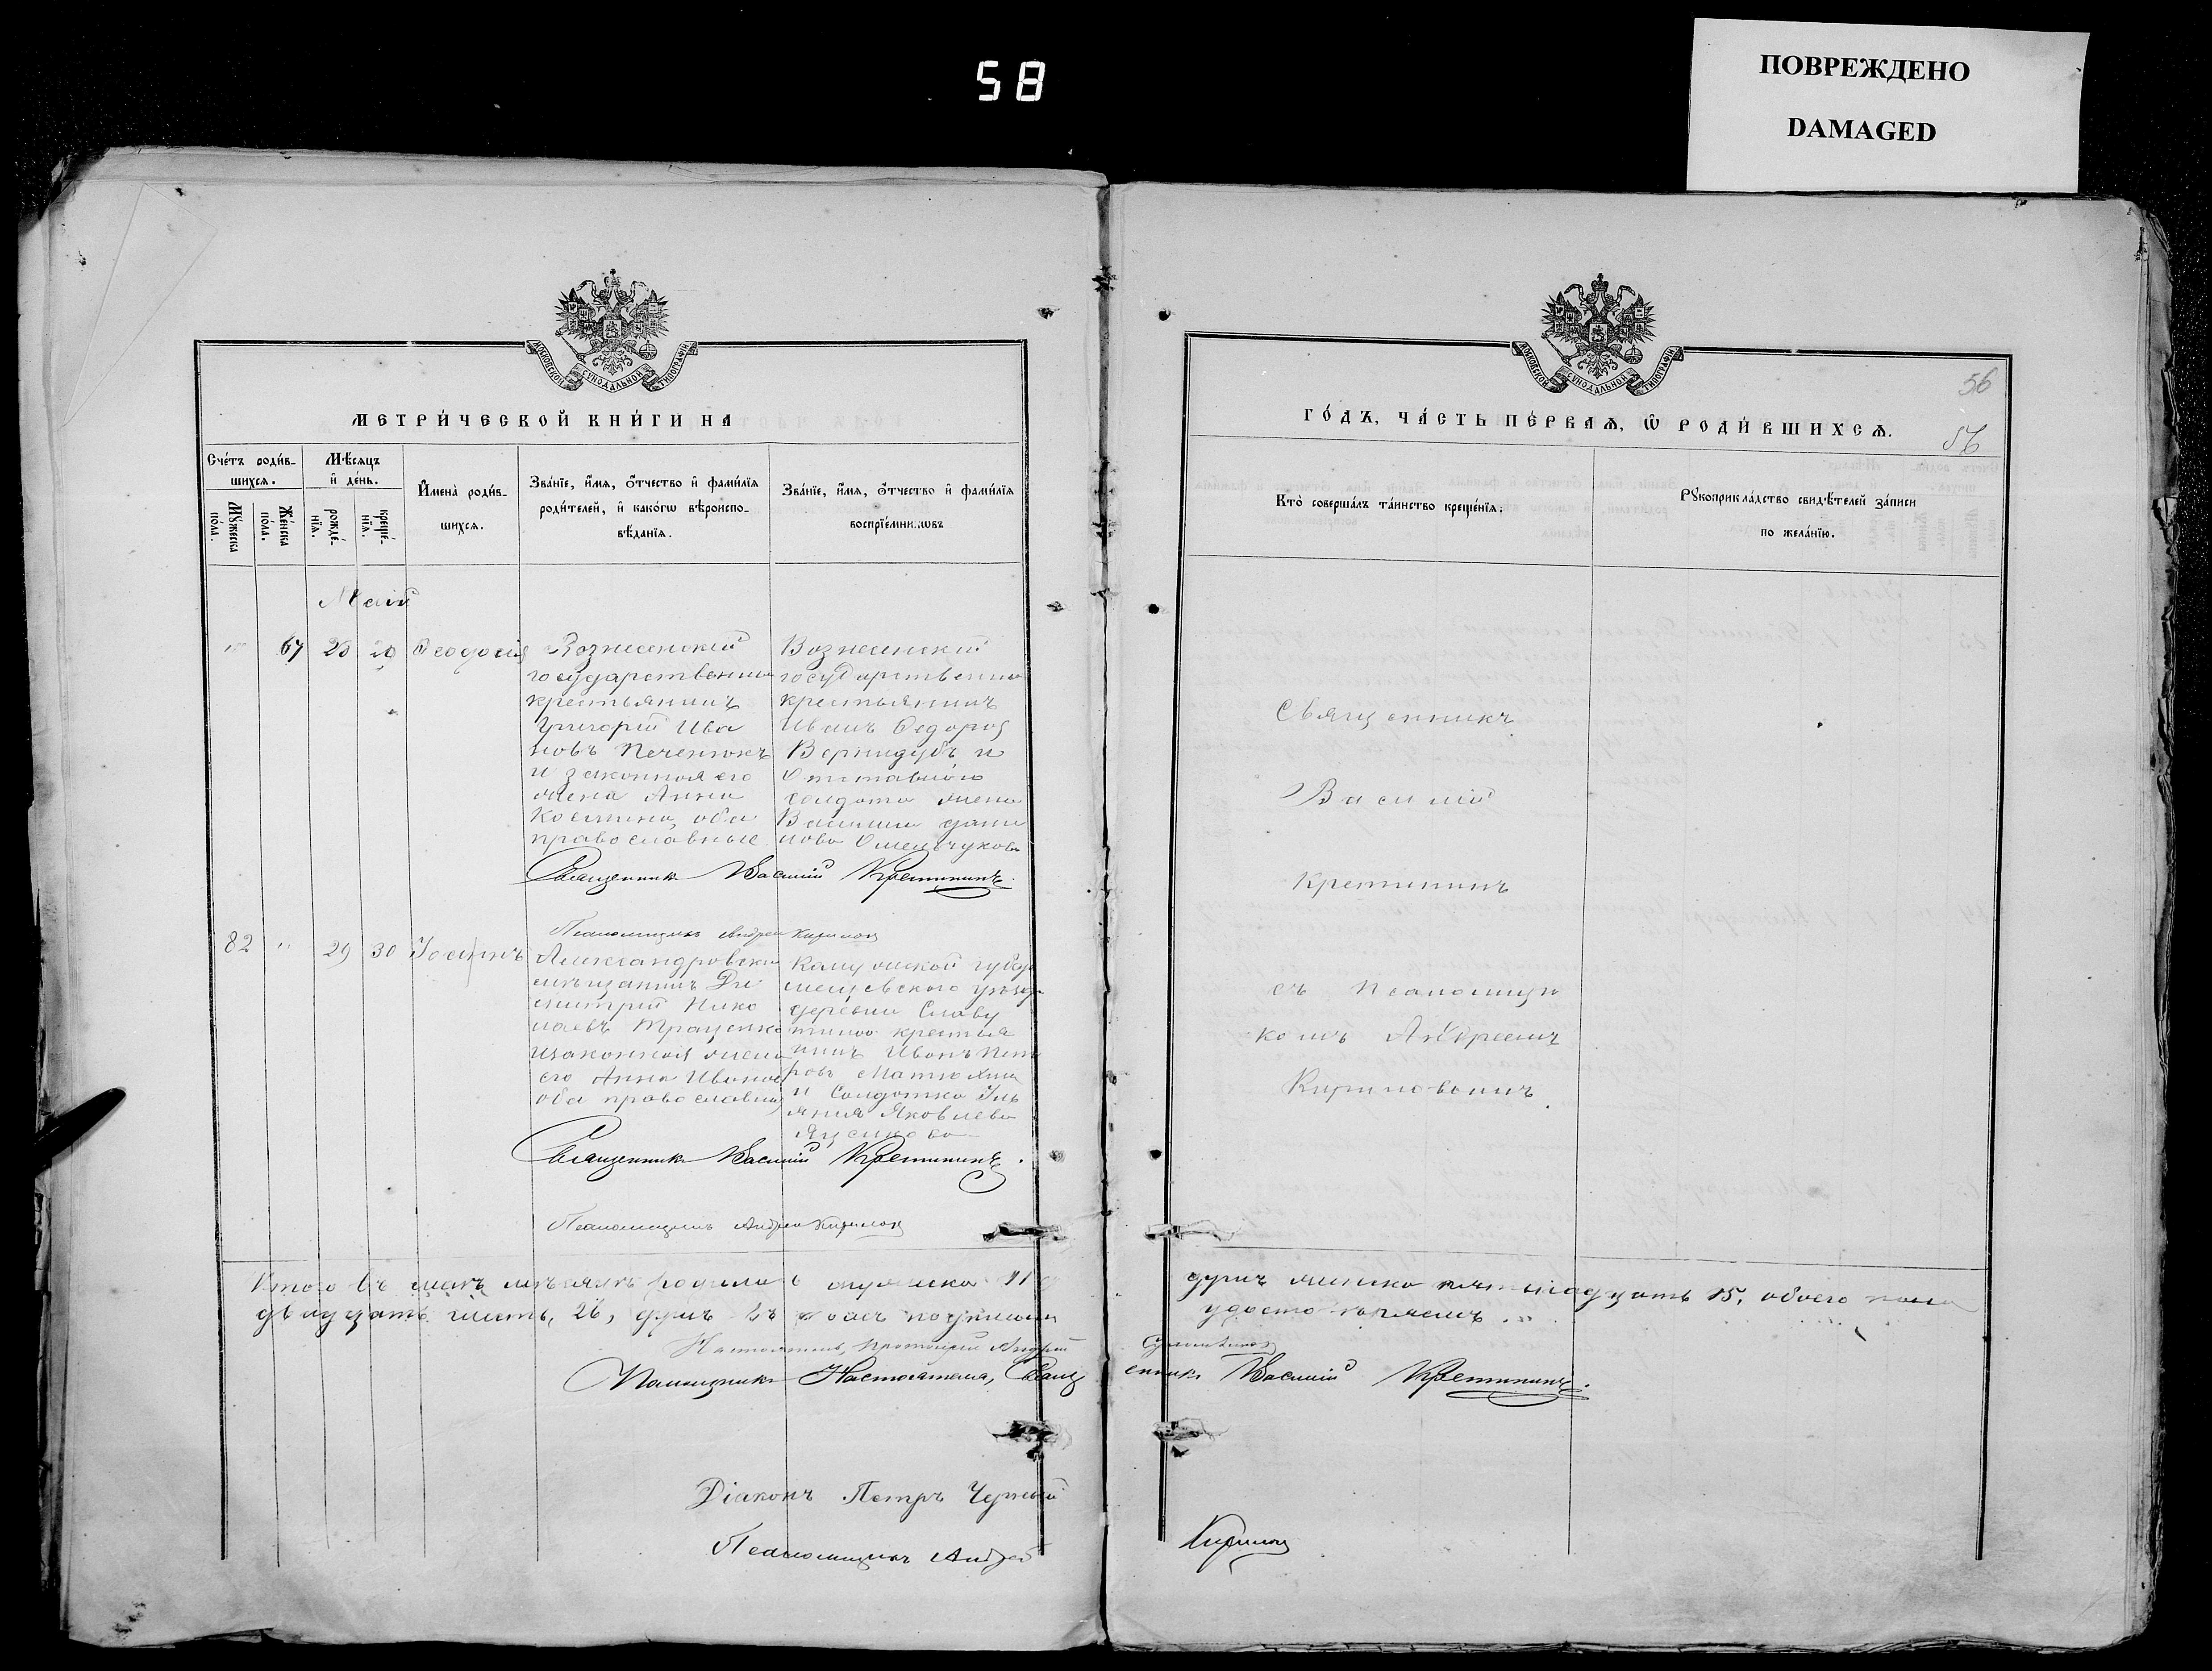 58
ПОВРЕЖДЕНО
DAMAGED
МОСКОВСКОЙ СѴНОДАЛЬНОЙ ТИПОГРАФІИ
МЕТРИ́ЧЕСКОЙ КНИ́ГИ НА
Сче́тъ роди́в-
шихсѧ.
Мѣ́сѧцъ
и҆ де́нь.
Мꙋ́жеска
по́ла.
Же́нска
по́ла.
рожде́-
нїѧ.
креще́-
нїѧ.
И҆мена̀ роди́в-
шихсѧ.
Зва́нїе, и҆́мѧ, ѻ҆́тчество и҆ фами́лїѧ
роди́телей, и҆ како́гѡ вѣроиспо-
вѣ́данїѧ.
Зва́нїе, и҆́мѧ, ѻ҆́тчество и҆ фами́лїѧ
воспрїе́мникѡвъ
Май
67 20 20 Ѳеодосія
Вознесенскій
государственный
крестьянинъ
Григорій Ива
новъ Печенюкъ
и законная его
жена Анна
Косьмина, оба
православные
Вознесенскій
государственный
крестьянинъ
Иванъ Ѳедоровъ
Вернидубъ и
Отставнаго
солдата жена
Омельчукова
Священникъ Василій Кретининъ.
Псаломщикъ Андрей Кириловъ
82 " 29 30 Іоаннъ
Александровскій
мѣщанинъ Ди
митрій Нико
лаевъ Троценко
и законная жена
его Анна Иванова
оба православные
Калужской губер
уѣзда
деревни
крестья
нинъ Иванъ Пет
ровъ Матюхинъ
и Солдатка Уль
яния Яковлева
Священникъ Василій Кретининъ.
Псаломщикъ Андрей Кириловъ
Итого въ маѣ мѣсяцѣ родилось мужеска
двадцать шесть, 26, душъ
Настоятель, Протоіерей Андрей
Помощникъ Настоятеля, Свящ
Діаконъ Петръ
Псаломщикъ Андрей
МОСКОВСКОЙ СѴНОДАЛЬНОЙ ТИПОГРАФІИ
56
ГО́ДЪ, ЧА́СТЬ ПЕ́РВАѦ, Ѡ҆ РОДИ́ВШИХСѦ.
56
Кто̀ соверша́лъ та́инство креще́нїѧ.
Рꙋкоприкла́дство свидѣ́телей за́писи
по жела́нїю.
Священникъ
Василій
Кретининъ
съ псаломщи
комъ Андреемъ
Кириловымъ.
душъ женска пятнадцать 15, обоего пола
енникъ Василій Кретининъ.
Кириловъ